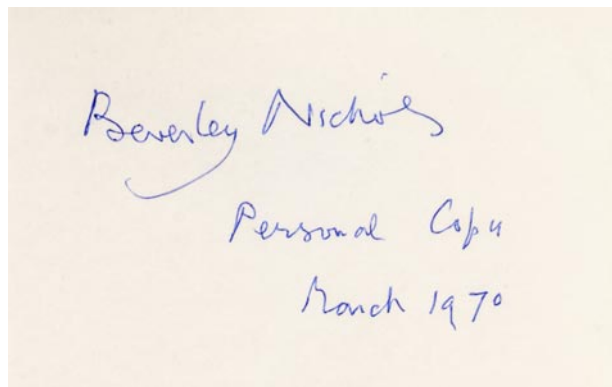 Beverley Nichols
Personal Copy
March 1970